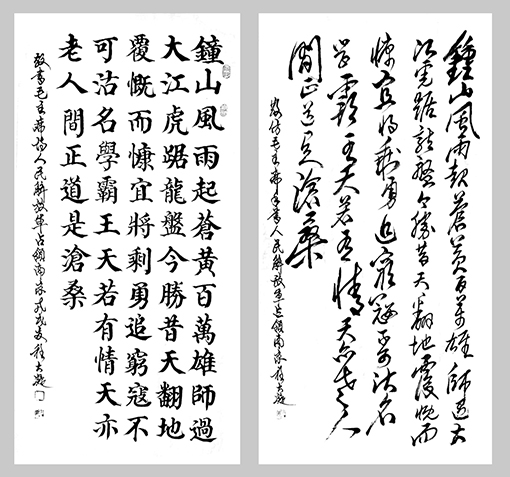 鐘山風雨起蒼黃百萬雄師過
大江虎踞龍盤今勝昔天翻地
覆慨而慷宜將剩勇追窮寇不
可沽名學霸王天若有情天亦
老人間正道是滄桑
敬書毛主席詩人民解放軍占領南京
鐘山風雨起蒼黃百萬雄師過大
江虎踞龍盤今勝昔天翻地覆慨而
慷宜將剩勇追窮寇不可沽名
學霸王天若有情天亦老人
間正道是滄桑
敬仿毛主席手書人民解放軍占領南京